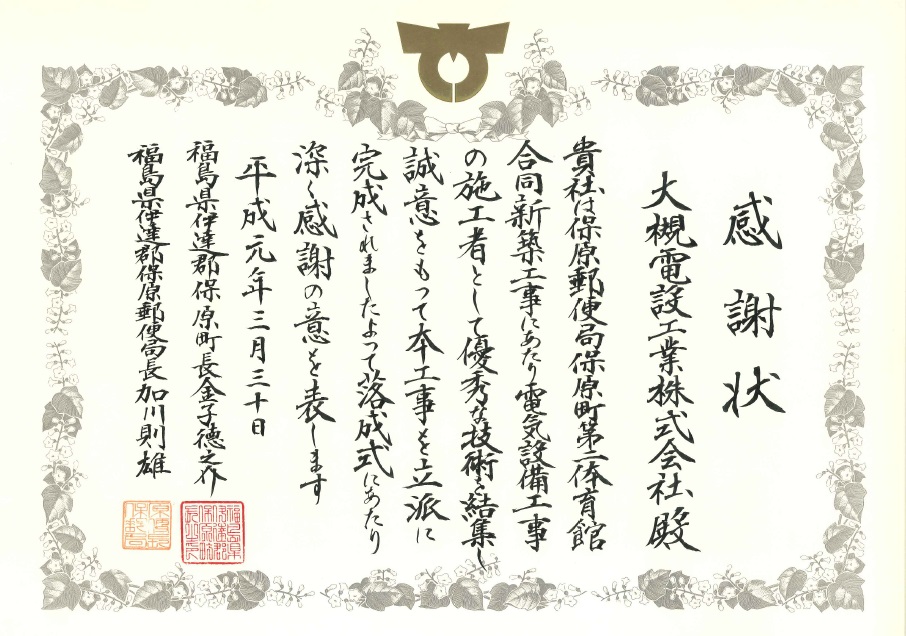 感謝状
大槻電設工業株式会社殿
貴社は保原郵便局保原町第二体育館
合同新築工事にあたり電気設備工事
の施工者として優秀な技術を結集し
誠意をもって本工事を立派に
完成されましたよって落成式にあたり
深く感謝の意を表します
平成元年三月三十日
福島県伊達郡保原町長金子徳之介
福島県伊達郡保原郵便局長加川則雄